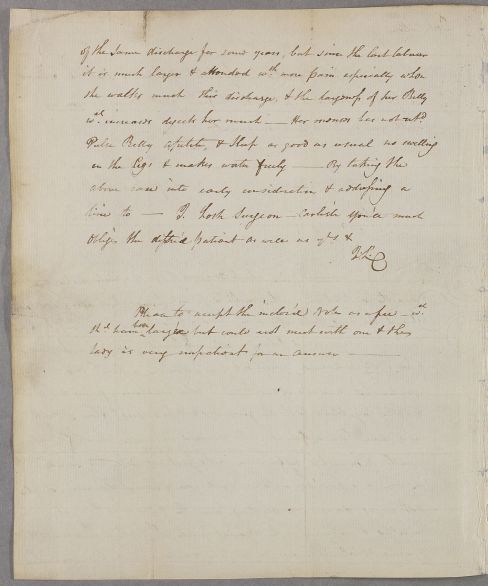 of the same discharge for some years, but since the last labour
it is much larger & attended wth more pain especially when
she walks much this discharge, & the largeness of her Belly
wch increases dejects her much — Her menses has not retd
Pulse Belly apetite, & Sleep as good as usual no swelling
in the Legs & makes water freely — By taking the
above case into early consideration & addressing a
line to — T. Losh Surgeon — Carlisle you'd much
oblige the distres'd patient as well as yrs &
T.L.
Please to accept the inclos'd Note as a fee — wch
shd have been larger but could not meet with one & the
lady is very impatient for an answer —